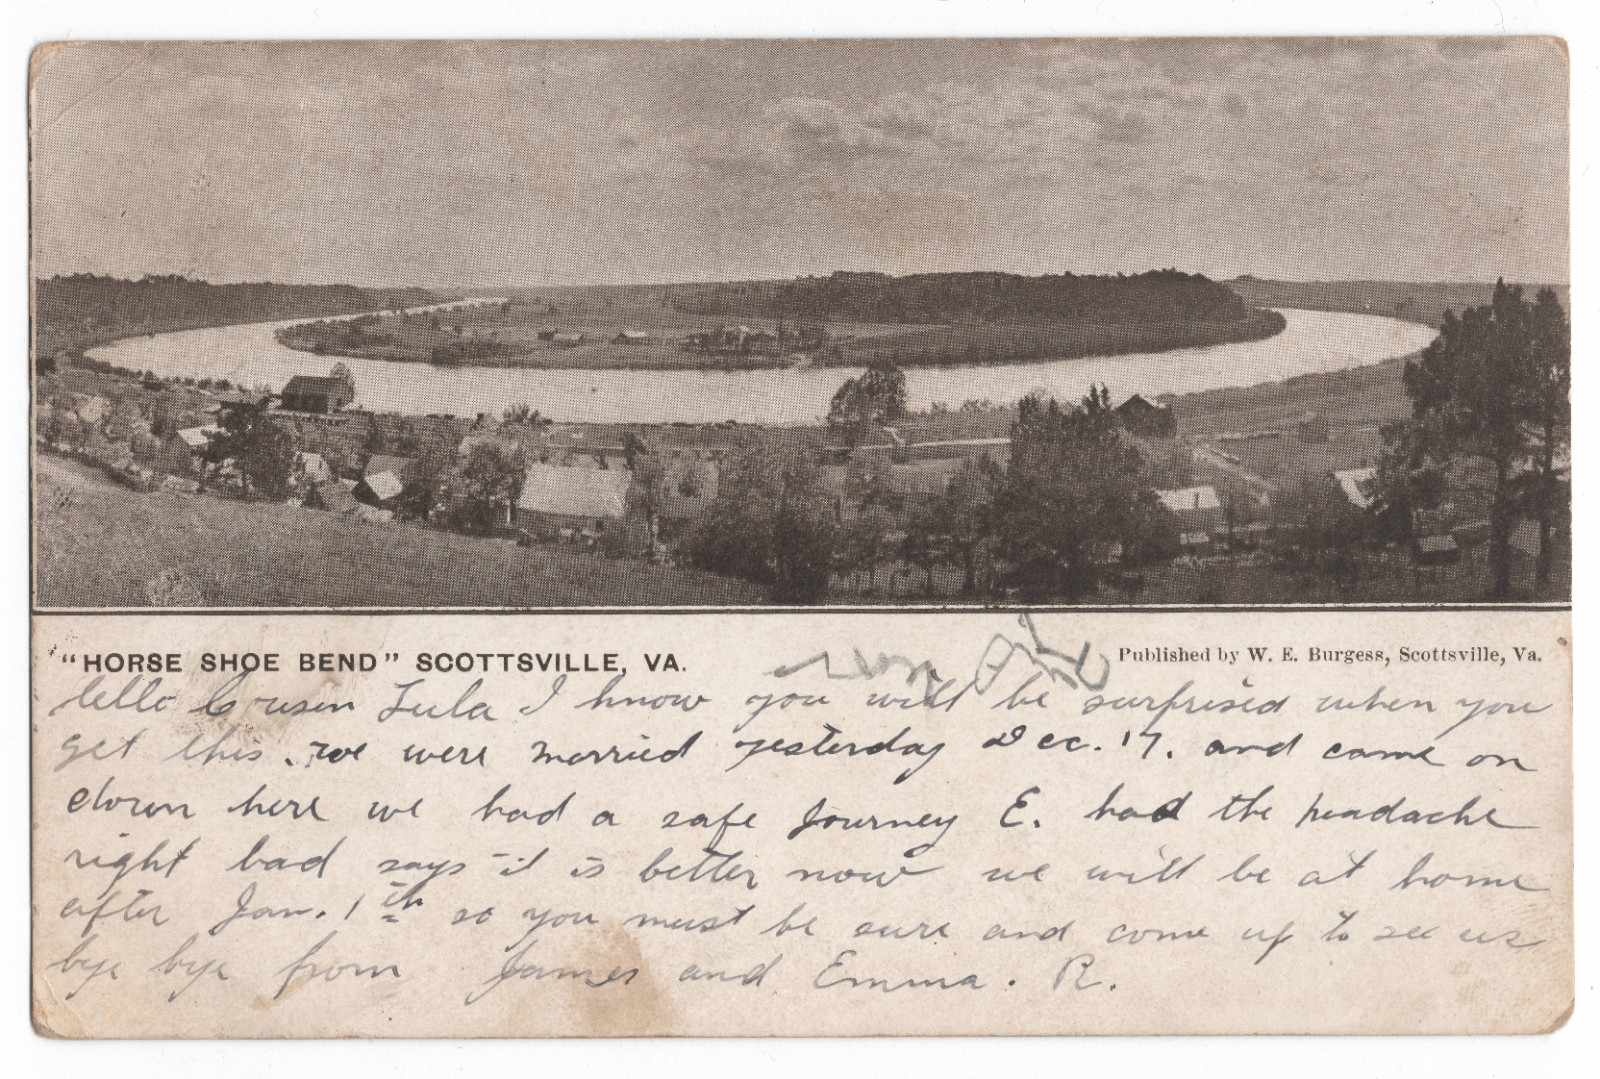 "HORSE SHOE BEND" SCOTTSVILLE, VA.
Published by W. E. Burgess, Scottsville, Va.
Hello Cousin Lula I know you will be surprised when you
get this. we were married yesterday Dec. 17. and came on
down here we had a safe Journey E. had the headache
right bad says it is better now we will be at home
after Jan. 1th so you must be sure and come up to see us
bye bye from James and Emma. R.